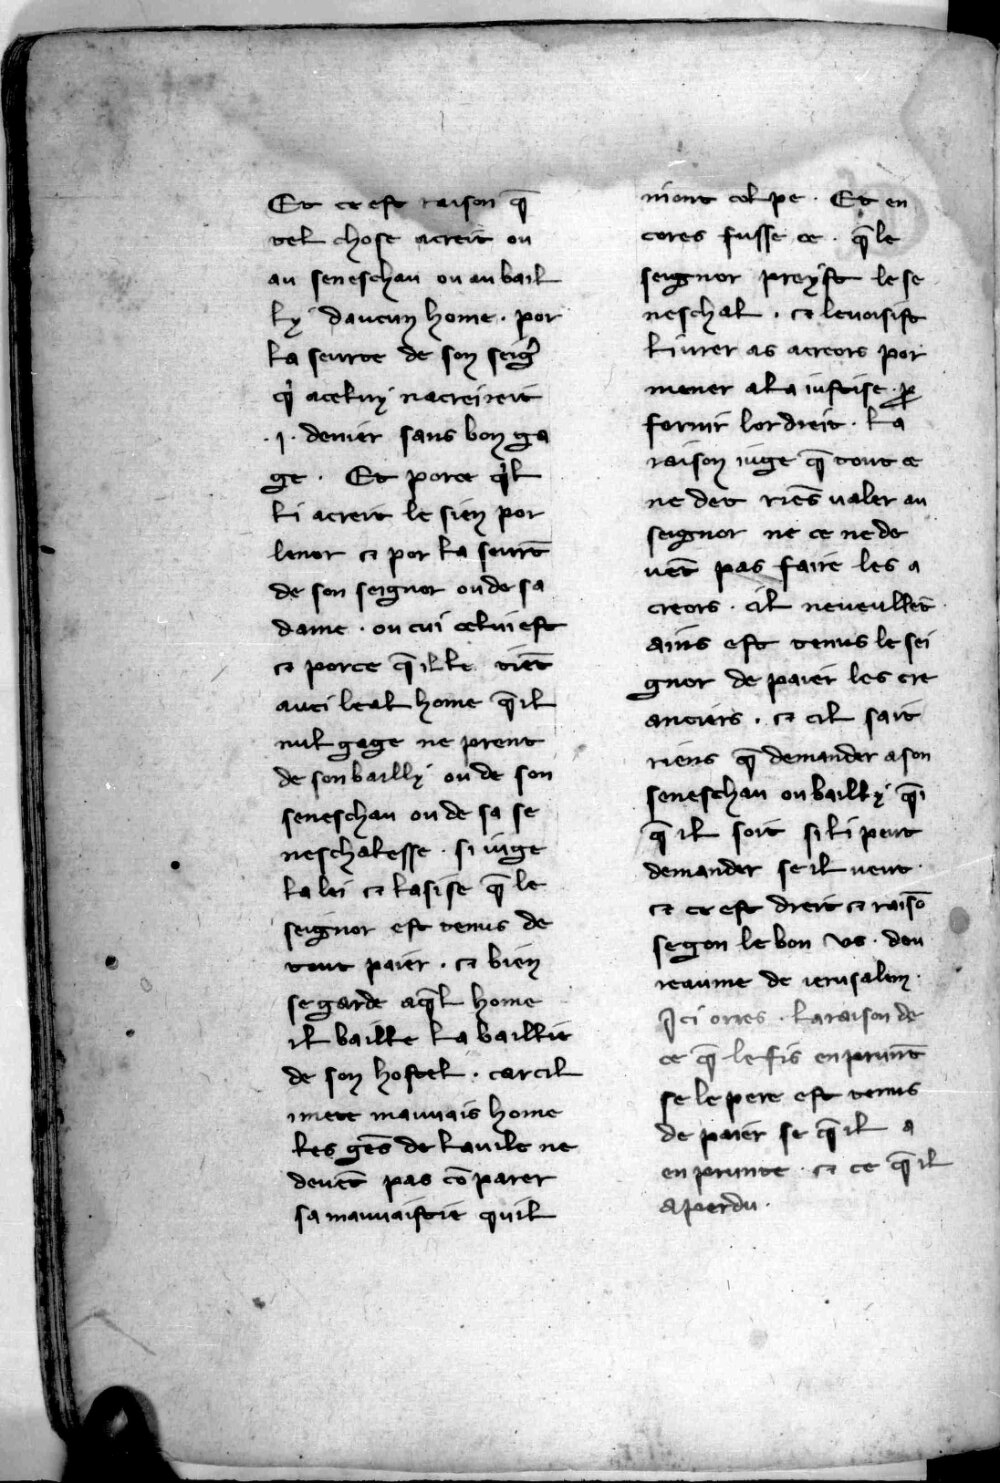 Et ce est raison q̄
tel chose acreit ou
au seneschau ou au bail
ly daucun home · por
la seurte de son seigr̄
q̇ a celuy nacreireit
· j · denier sans bon ga
ge · Et por ce q̇l
li acreit le sien por
lenor ⁊ por la seurt̄
de son seignor ou de sa
dame · ou cui celui est
⁊ por ce q̄ il le tiēt
auci leal home q̄ il
nul gage ne prent
de son bailly ou de son
seneschau ou de sa se
neschalesse · si iuge
la lei ⁊ lasise q̄ le
seignor est tenus de
tout paier · ⁊ bien
se garde a q̄l home
il baille la baillie
de son hostel · car cil
i mete mauuais home
les gēs de la vile ne
deuēt pas cōparer
sa mauuaistie quil
niont colpe · Et en
cores fusse ce · q̄ le
seignor preyst le se
neschal · ⁊ le vosist
liurer as acreors por
mener a la iustise · ꝑ
fornir lor dreit · La
raison iuge q̄ tout ce
ne det riēs ualer au
seignor ne ce ne de
uēt pas faire les a
creors · cil ne veullēt
ains est tenus le sei
gnor de paier les cre
anciers · ⁊ cil sait
riens q̄ demander a son
seneschau ou bailly q̄i
q̄ il soit si li peut
demander se il veut ·
⁊ ce est dreit ⁊ raisō
segon le bon us · dou
reaume de ierusalem ·
Ici orres · la raison de
ce q̄ le fis enprunt̄
se le pere est tenus
de paier se q̄ il a
enprunte · ⁊ ce q̄ il
a perdu ·